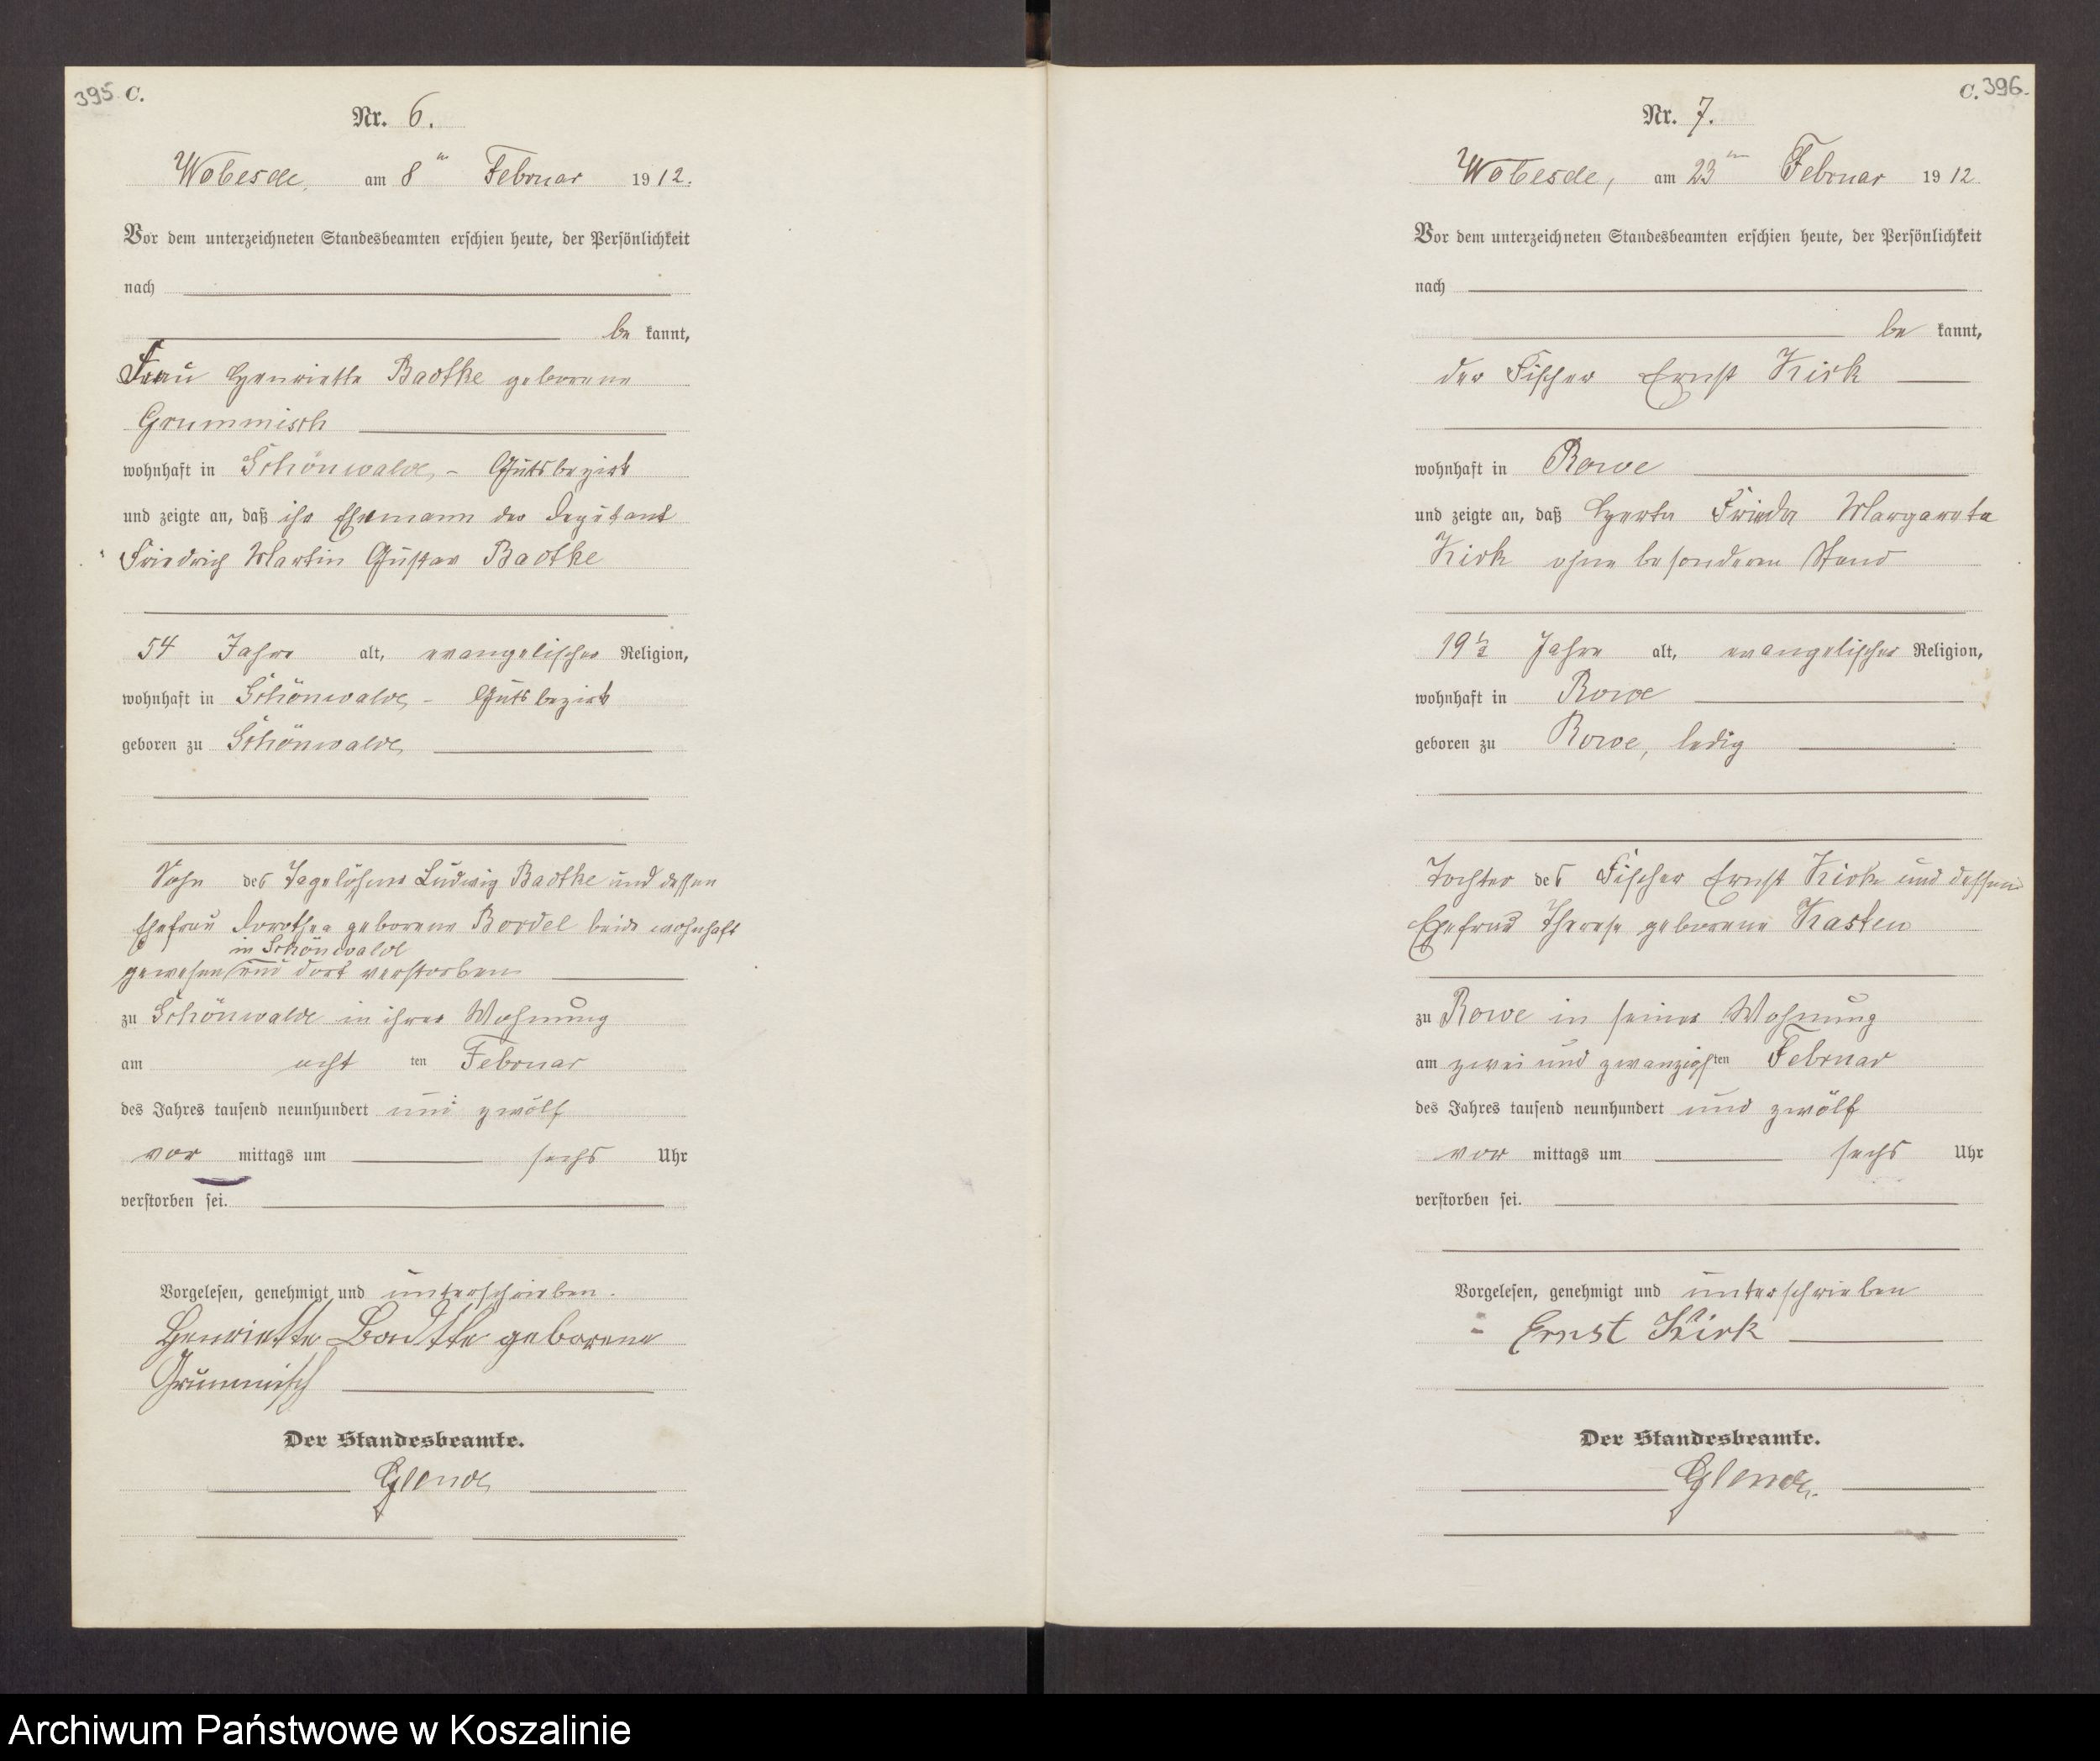 395. C.
Nr. 6.
Wobesde, am 8ten Februar 1912.
Vor dem unterzeichneten Standesbeamten erschien heute, der Persönlichkeit
nach
be kannt,
Frau Henriette Badtke geborene
Grummisch
wohnhaft in Schönwalde, - Gutsbezirk
und zeigte an, daß ihr Ehemann der Deputant
Friedrich Martin Gustav Badtke
54 Jahre alt, evangelischer Religion,
wohnhaft in Schönwalde, - Gutsbezirk
geboren zu Schönwalde,
Sohn des Tagelöhner Ludwig Badtke und dessen
Ehefrau Dorothea geborene Bordel beide wohnhaft
in Schönwalde
gewesen und dort verstorben
zu Schönwalde in ihrer Wohnung
am acht ten Februar
des Jahres tausend neunhundert und zwölf
vor mittags um sechs Uhr
verstorben sei.
Vorgelesen, genehmigt und unterschrieben.
Henriette Badtke geborene
Grummisch
Der Standesbeamte.
Glende
C. 396.
Nr. 7.
Wobesde, am 23ten Februar 1912
Vor dem unterzeichneten Standesbeamten erschien heute, der Persönlichkeit
nach
be kannt,
der Fischer Ernst Kirk
wohnhaft in Rowe
und zeigte an, daß Herta Frieda Margareta
Kirk ohne besonderen Stand
19 1/2 Jahre alt, evangelischer Religion,
wohnhaft in Rowe
geboren zu Rowe, ledig
Tochter des Fischer Ernst Kirk und dessen
Ehefrau Therese geborene Kasten
zu Rowe in seiner Wohnung
am zwei und zwanzigsten Februar
des Jahres tausend neunhundert und zwölf
vor mittags um sechs Uhr
verstorben sei.
Vorgelesen, genehmigt und unterschrieben
Ernst Kirk
Der Standesbeamte.
Glende.
Archiwum Państwowe w Koszalinie